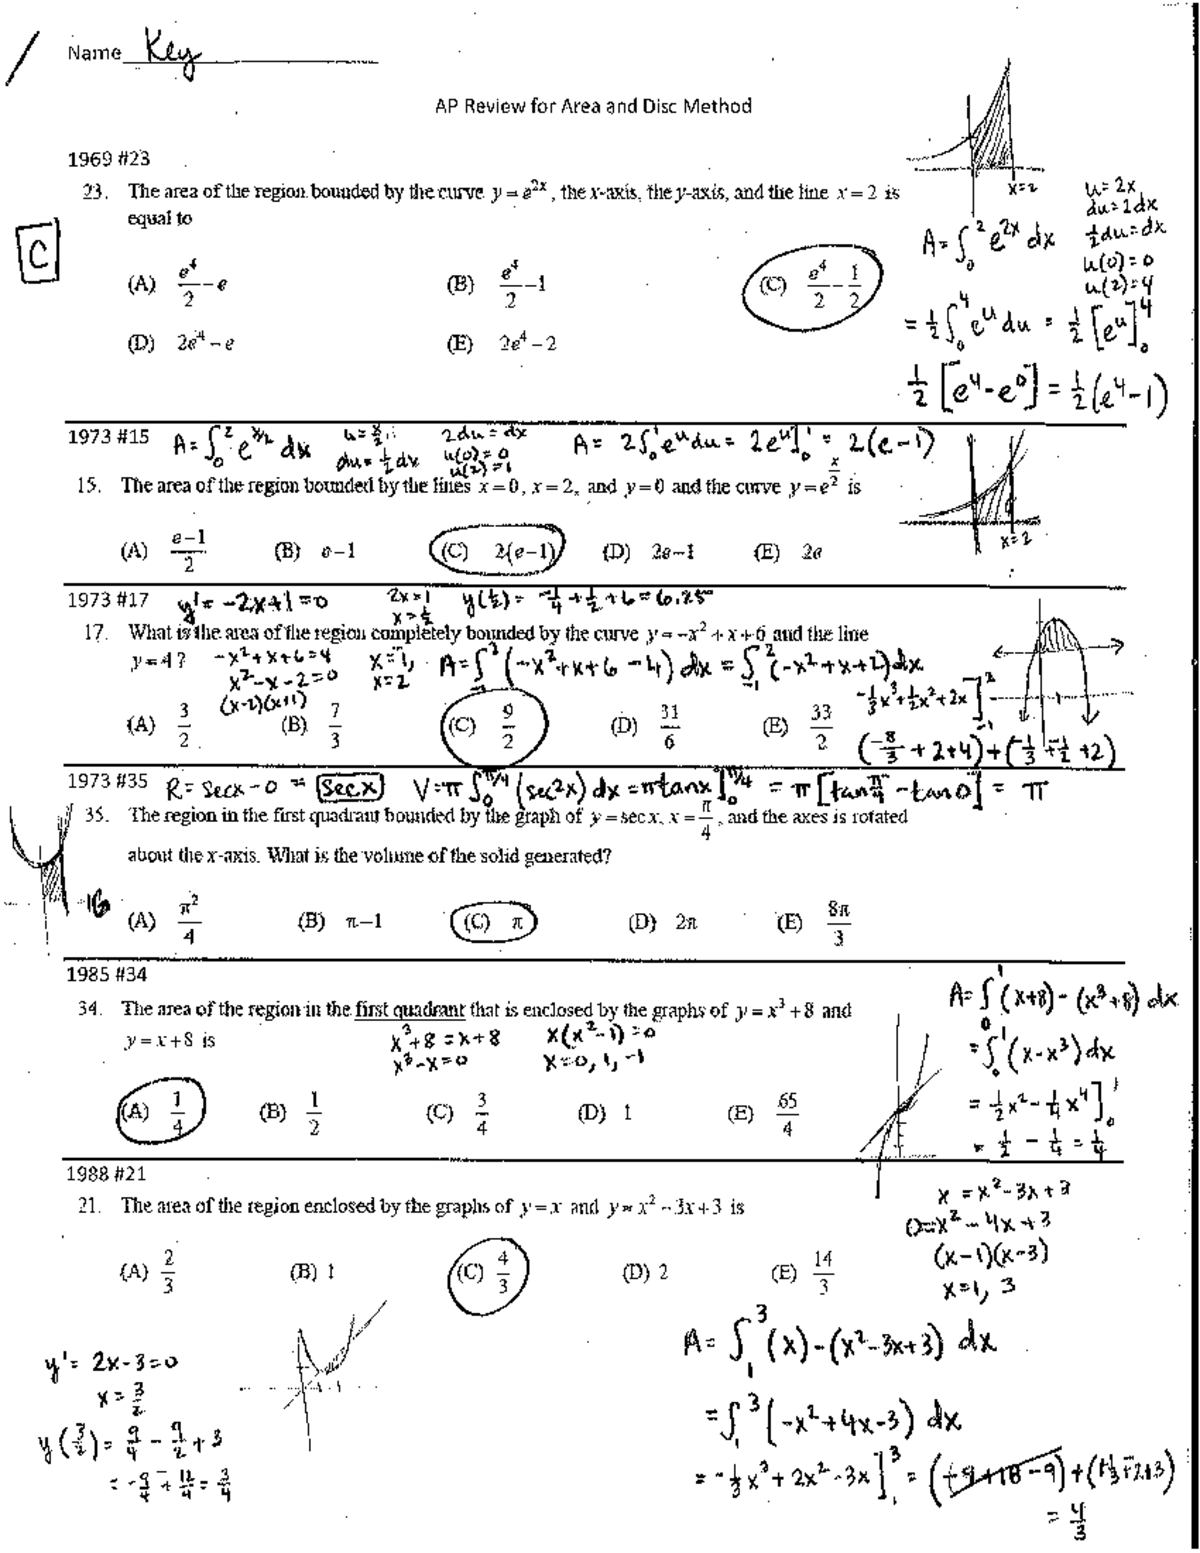 Name Key
AP Review for Area and Disc Method
1969 #23
23. The area of the region bounded by the curve y = e^{2x}, the x-axis, the y-axis, and the line x = 2 is
equal to
C
(A) e^4/2 − e (B) e^4/2 − 1 (C) e^4/2 − 1/2
(D) 2e^4 − e (E) 2e^4 − 2
x=2
u=2x
du=2dx
½du=dx
u(0)=0
u(2)=4
A=∫_0^2 e^{2x} dx
=½∫_0^4 e^u du = ½[e^u]_0^4
½[e^4-e^0]=½(e^4-1)
1973 #15 A=∫_0^2 e^{x/2} dx u=x/2 du=½dx 2du=dx u(0)=0 u(2)=1 A= 2∫_0^1 e^u du = 2e^u]_0^1 = 2(e-1)
15. The area of the region bounded by the lines x = 0, x = 2, and y = 0 and the curve y = e^{x/2} is
x=2
(A) (e−1)/2 (B) e−1 (C) 2(e−1) (D) 2e−1 (E) 2e
1973 #17 y'= -2x+1=0 2x=1 x=½ y(½)= -¼+½+6=6.25
17. What is the area of the region completely bounded by the curve y = −x^2 + x + 6 and the line
y = 4? -x^2+x+6=4 x=-1, A=∫_{-1}^2 (-x^2+x+6-4) dx = ∫_{-1}^2 (-x^2+x+2)dx
x^2-x-2=0 x=2
(x-2)(x+1)
-⅓x^3+½x^2+2x]_{-1}^2
(A) 3/2 (B) 7/3 (C) 9/2 (D) 31/6 (E) 33/2
(-8/3+2+4)+(-1/3+-1/2+2)
1973 #35 R= secx-0 = secx V=π∫_0^{π/4} (sec^2x) dx = πtanx]_0^{π/4} = π[tan π/4 - tan 0] = π
35. The region in the first quadrant bounded by the graph of y = sec x, x = π/4, and the axes is rotated
about the x-axis. What is the volume of the solid generated?
(A) π^2/4 (B) π−1 (C) π (D) 2π (E) 8π/3
1985 #34
34. The area of the region in the first quadrant that is enclosed by the graphs of y = x^3 + 8 and
y = x + 8 is
x^3+8=x+8 x(x^2-1)=0
x^3-x=0 x=0, 1, -1
A=∫_0^1 (x+8)-(x^3+8) dx
=∫_0^1 (x-x^3)dx
=½x^2-¼x^4]_0^1
= ½ - ¼ = ¼
(A) 1/4 (B) 1/2 (C) 3/4 (D) 1 (E) 65/4
1988 #21
21. The area of the region enclosed by the graphs of y = x and y = x^2 − 3x + 3 is
x = x^2-3x+3
0=x^2-4x+3
(x-1)(x-3)
x=1, 3
(A) 2/3 (B) 1 (C) 4/3 (D) 2 (E) 14/3
y'= 2x-3=0
x=3/2
y(3/2)= 9/4 - 9/2 + 3
= -9/4 + 12/4 = 3/4
A=∫_1^3 (x)-(x^2-3x+3) dx
=∫_1^3 (-x^2+4x-3) dx
= -⅓x^3+2x^2-3x]_1^3 = (-9+18-9)+
= 4/3